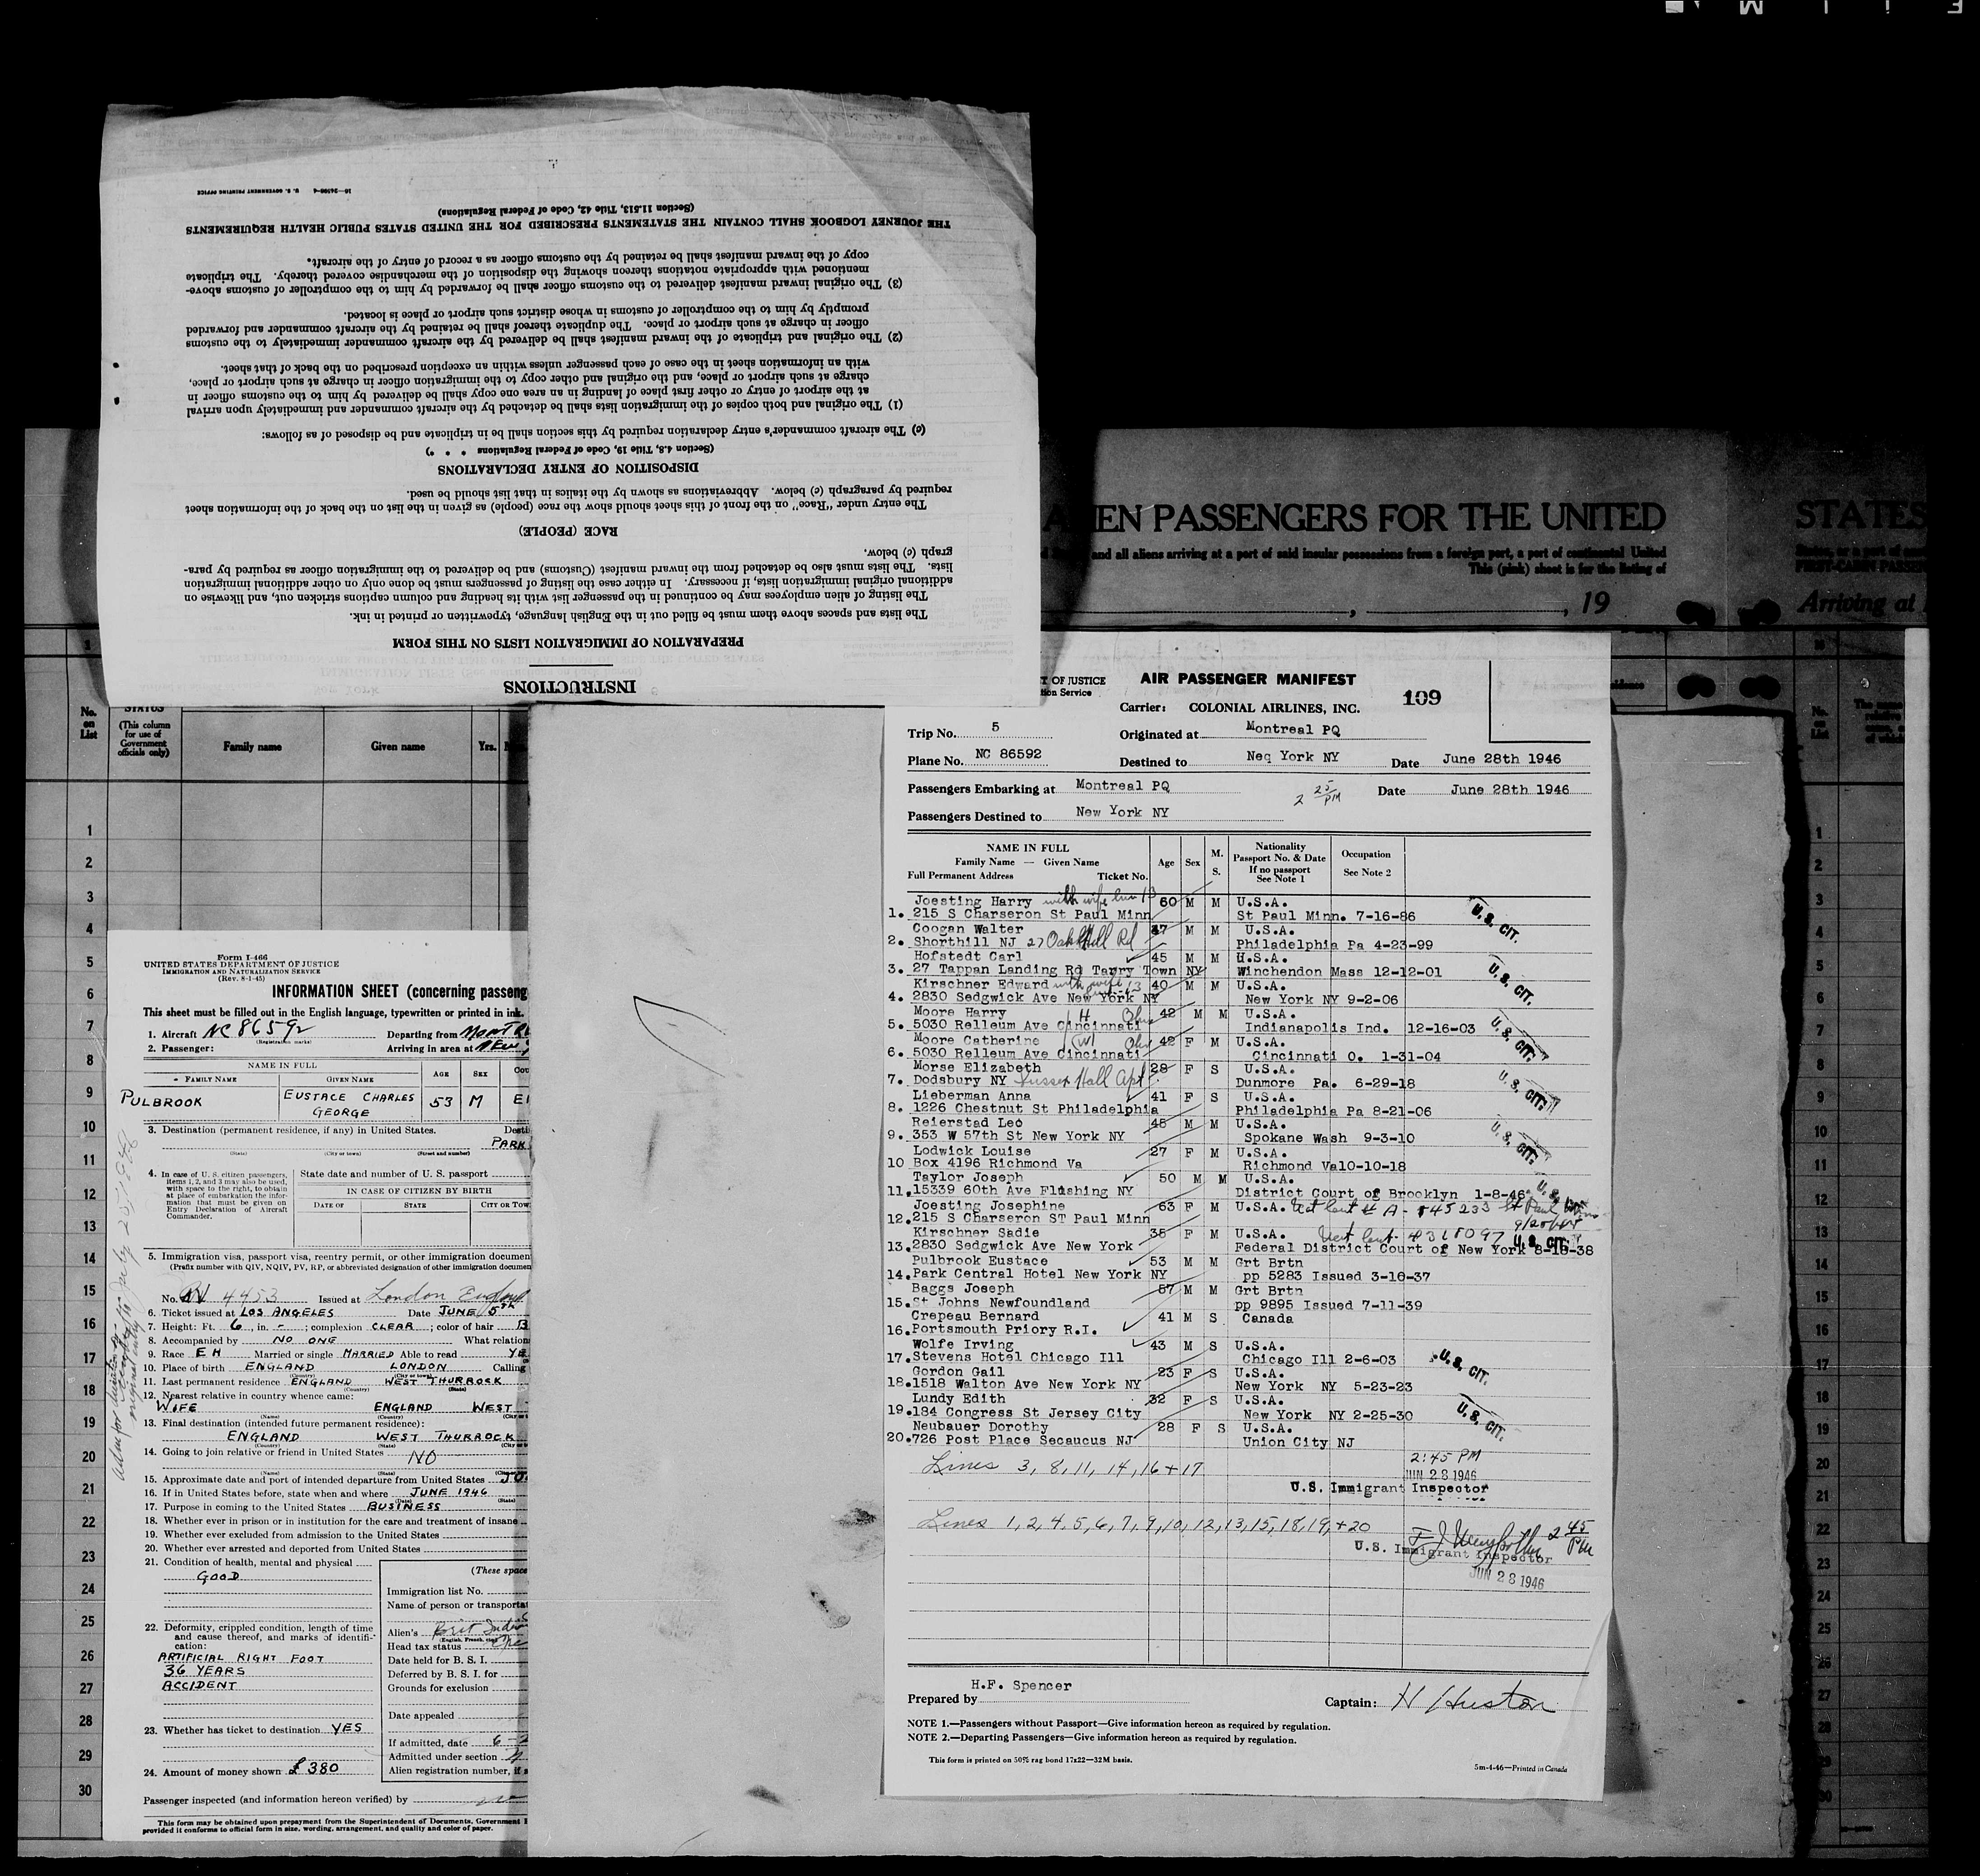 INSTRUCTIONS
PREPARATION OF IMMIGRATION LISTS ON THIS FORM
The lists and spaces above them must be filled out in the English language, typewritten or printed in ink.
The listing of alien employees may be continued in the passenger list with its heading and column captions stricken out, and likewise on
additional original immigration lists, if necessary. In either case the listing of passengers must be done only on other additional immigration
lists. The lists must also be detached from the inward manifest (Customs) and be delivered to the immigration officer as required by para-
graph (c) below.
RACE (PEOPLE)
The entry under "Race" on the front of this sheet should show the race (people) as given in the list on the back of the information sheet
required by paragraph (c) below. Abbreviations as shown by the italics in that list should be used.
DISPOSITION OF ENTRY DECLARATIONS
(Section 4.8, Title 19, Code of Federal Regulations * * *)
(c) The aircraft commander's entry declaration required by this section shall be in triplicate and be disposed of as follows:
(1) The original and both copies of the immigration lists shall be detached by the aircraft commander and immediately upon arrival
at the airport of entry or other first place of landing in an area one copy shall be delivered by him to the customs officer in
charge at such airport or place, and the original and other copy to the immigration officer in charge at such airport or place,
with an information sheet in the case of each passenger unless within an exception prescribed on the back of that sheet.
(2) The original and triplicate of the inward manifest shall be delivered by the aircraft commander immediately to the customs
officer in charge at such airport or place. The duplicate thereof shall be retained by the aircraft commander and forwarded
promptly by him to the comptroller of customs in whose district such airport or place is located.
(3) The original inward manifest delivered to the customs officer shall be forwarded by him to the comptroller of customs above-
mentioned with appropriate notations thereon showing the disposition of the merchandise covered thereby. The triplicate
copy of the inward manifest shall be retained by the customs officer as a record of entry of the aircraft.
THE JOURNEY LOGBOOK SHALL CONTAIN THE STATEMENTS PRESCRIBED FOR THE UNITED STATES PUBLIC HEALTH REQUIREMENTS
(Section 11.513, Title 42, Code of Federal Regulations)
U. S. GOVERNMENT PRINTING OFFICE
IEN PASSENGERS FOR THE UNITED STATES
and all aliens arriving at a port of said insular possessions from a foreign port, a port of continental United
This (pink) sheet is for the listing of
, 19
Arriving at
No. on List
STATUS
(This column for use of Government officials only)
Family name
Given name
Yrs.
1
2
3
4
5
6
7
8
9
10
11
12
13
14
15
16
17
18
19
20
21
22
23
24
25
26
27
28
29
30
Form I-466
UNITED STATES DEPARTMENT OF JUSTICE
IMMIGRATION AND NATURALIZATION SERVICE
(Rev. 8-1-45)
INFORMATION SHEET (concerning passeng
This sheet must be filled out in the English language, typewritten or printed in ink.
1. Aircraft NC 86592 Departing from
(Registration marks)
2. Passenger: Arriving in area at
NAME IN FULL
FAMILY NAME GIVEN NAME AGE SEX
PULBROOK EUSTACE CHARLES GEORGE 53 M
3. Destination (permanent residence, if any) in United States.
PARK
(State) (City or town) (Street and number)
4. In case of U. S. citizen passengers,
items 1, 2, and 3 may also be used,
with space to the right, to obtain
at place of embarkation the infor-
mation that must be given on
Entry Declaration of Aircraft
Commander.
State date and number of U. S. passport
IN CASE OF CITIZEN BY BIRTH
DATE OF STATE CITY OR TOW
5. Immigration visa, passport visa, reentry permit, or other immigration documen
(Prefix number with QIV, NQIV, PV, RP, or abbreviated designation of other immigration documen
No. 4453 Issued at London England
6. Ticket issued at LOS ANGELES Date JUNE 5th
7. Height: Ft. 6, in. - ; complexion CLEAR ; color of hair
8. Accompanied by NO ONE What relation
9. Race EH Married or single MARRIED Able to read YE
10. Place of birth ENGLAND LONDON Calling
11. Last permanent residence ENGLAND WEST THURROCK
12. Nearest relative in country whence came:
WIFE ENGLAND WEST
13. Final destination (intended future permanent residence):
ENGLAND WEST THURROCK
14. Going to join relative or friend in United States NO
15. Approximate date and port of intended departure from United States
16. If in United States before, state when and where JUNE 1946
17. Purpose in coming to the United States BUSINESS
18. Whether ever in prison or in institution for the care and treatment of insane
19. Whether ever excluded from admission to the United States
20. Whether ever arrested and deported from United States
21. Condition of health, mental and physical
GOOD
22. Deformity, crippled condition, length of time
and cause thereof, and marks of identifi-
cation:
ARTIFICIAL RIGHT FOOT
36 YEARS
ACCIDENT
23. Whether has ticket to destination YES
24. Amount of money shown £380
(These space
Immigration list No.
Name of person or transportat
Alien's
Head tax status
Date held for B. S. I.
Deferred by B. S. I. for
Grounds for exclusion
Date appealed
If admitted, date
Admitted under section
Alien registration number, if
Passenger inspected (and information hereon verified) by
This form may be obtained upon prepayment from the Superintendent of Documents, Government
provided it conforms to official form in size, wording, arrangement, and quality and color of paper.
T OF JUSTICE
tion Service
AIR PASSENGER MANIFEST
109
Carrier: COLONIAL AIRLINES, INC.
Trip No. 5 Originated at Montreal PQ
Plane No. NC 86592 Destined to Neq York NY Date June 28th 1946
Passengers Embarking at Montreal PQ 2 25 PM Date June 28th 1946
Passengers Destined to New York NY
NAME IN FULL
Family Name — Given Name
Full Permanent Address Ticket No.
Age Sex M. S.
Nationality Passport No. & Date If no passport See Note 1
Occupation See Note 2
Joesting Harry with wife line 13 60 M M U.S.A.
1. 215 S Charseron St Paul Minn St Paul Minn. 7-16-86 U.S. CIT.
Coogan Walter 47 M M U.S.A.
2. Shorthill NJ 27 Oak Hill Rd Philadelphia Pa 4-23-99
Hofstedt Carl 45 M M U.S.A.
3. 27 Tappan Landing Rd Tarry Town NY Winchendon Mass 12-12-01 U.S. CIT.
Kirschner Edward with wife 13 40 M M U.S.A.
4. 2830 Sedgwick Ave New York NY New York NY 9-2-06
Moore Harry H Ohio 42 M M U.S.A.
5. 5030 Relleum Ave Cincinnati Indianapolis Ind. 12-16-03 U.S. CIT.
Moore Catherine (W) Ohio 42 F M U.S.A.
6. 5030 Relleum Ave Cincinnati Cincinnati O. 1-31-04
Morse Elizabeth 28 F S U.S.A.
7. Dodsbury NY Sussex Hall Apt Dunmore Pa. 6-29-18 U.S. CIT.
Lieberman Anna 41 F S U.S.A.
8. 1226 Chestnut St Philadelphia Philadelphia Pa 8-21-06
Reierstad Leo 45 M M U.S.A.
9. 353 W 57th St New York NY Spokane Wash 9-3-10 U.S. CIT.
Lodwick Louise 27 F M U.S.A.
10 Box 4196 Richmond Va Richmond Va10-10-18
Taylor Joseph 50 M M U.S.A.
11. 15339 60th Ave Flushing NY District Court of Brooklyn 1-8-46
Joesting Josephine 63 F M U.S.A.
12. 215 S Charseron ST Paul Minn
Kirschner Sadie 35 F M U.S.A.
13. 2830 Sedgwick Ave New York Federal District Court of New York 8-16-38 U.S. CIT.
Pulbrook Eustace 53 M M Grt Brtn
14. Park Central Hotel New York NY pp 5283 Issued 3-10-37
Baggs Joseph 57 M M Grt Brtn
15. St Johns Newfoundland pp 9895 Issued 7-11-39
Crepeau Bernard 41 M S Canada
16. Portsmouth Priory R.I.
Wolfe Irving 43 M S U.S.A.
17. Stevens Hotel Chicago Ill Chicago Ill 2-6-03 U.S. CIT.
Gordon Gail 23 F S U.S.A.
18. 1518 Walton Ave New York NY New York NY 5-23-23
Lundy Edith 32 F S U.S.A.
19. 184 Congress St Jersey City New York NY 2-25-30 U.S. CIT.
Neubauer Dorothy 28 F S U.S.A.
20. 726 Post Place Secaucus NJ Union City NJ
Lines 3, 8, 11, 14, 16 + 17
2:45 PM
JUN 28 1946
U.S. Immigrant Inspector
Lines 1, 2, 4, 5, 6, 7, 9, 10, 12, 13, 15, 18, 19, + 20
2 45 PM
U.S. Immigrant Inspector
JUN 28 1946
Prepared by H.F. Spencer
Captain: H Huston
NOTE 1.—Passengers without Passport—Give information hereon as required by regulation.
NOTE 2.—Departing Passengers—Give information hereon as required by regulation.
This form is printed on 50% rag bond 17x22—32M basis.
5m-4-46—Printed in Canada